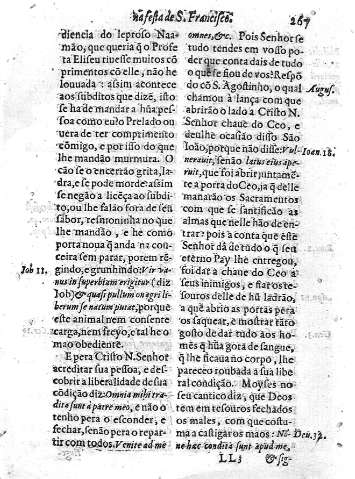 na festa de S. Francisco. 267
diencia do leproso Naa-
mão, que queria q̃ o Profe
ta Eliseu tiuesse muitos cõ
primentos cõ elle, não he
louuada: assim acontece
aos subditos que dizẽ, isto
se ha de mandar a hũa pes
soa como eu? o Prelado ou
uera de ter comprimento
cõmigo, e por isso do que
lhe mandão murmura. O
cão se o encerrão grita, la-
dra, e se pode morde: assim
se negão a licẽça ao subdi-
to, ou lhe falão fora de seu
sabor, resmoninha no que
lhe mandão, e he como
porta noua q̃ anda na cou
ceira sem parar, porem rã-
gindo, e grunhindo: Vir va-
Iob 11.
nus in superbiam erigitur (diz
Job) & quasi pullum onagri li-
berum se natum putat, porque
este animal nem consente
carga, nem freyo, e tal he o
mao obediente.
E pera Cristo N. Senhor
acreditar sua pessoa, e des-
cobrir a liberalidade de sua
cõdição diz: Omnia mihi tra-
dita sunt à patre meo, e não o
tenho pera o esconder, e
fechar, senão pera o repar-
tir com todos. Venite ad me
omnes, &c. Pois Senhor se
tudo tendes em vosso po-
der que conta dais de tudo
o q̃ se fiou de vos? Respõ
do cõ S. Agostinho, o qual
Augus.
chamou à lança com que
abrirão o lado a Cristo N.
Senhor chaue do Ceo, e
deulhe occasião disso São
Ioão, porque não disse: Vul-
Ioan. 16.
nerauit, senão latus eius ape-
ruit, que foi abrir juntamẽ-
te a porta do Ceo, ja q̃ delle
manarão os Sacramentos
com que se santificão as
almas que nelle hão de en-
trar: pois a conta que este
Senhor dà de tudo o q̃ seu
eterno Pay lhe entregou,
foi dar a chaue do Ceo a
seus inimigos, e fiar os te-
souros delle de hũ ladrão,
a quẽ abrio as portas pera
os saquear, e mostrar tão
gosto de dar tudo aos ho-
mẽs q̃ hũa gota de sangue,
q̃ lhe ficaua no corpo, lhe
pareceo roubada a sua libe
ral condição. Moyses no
seu cantico diz, que Deos
tem em tesouros fechados
os males, com que costu-
ma castigar os maos: Nõ-
Deu. 32.
ne hæc condita sunt apud me,
LL3 & sig-